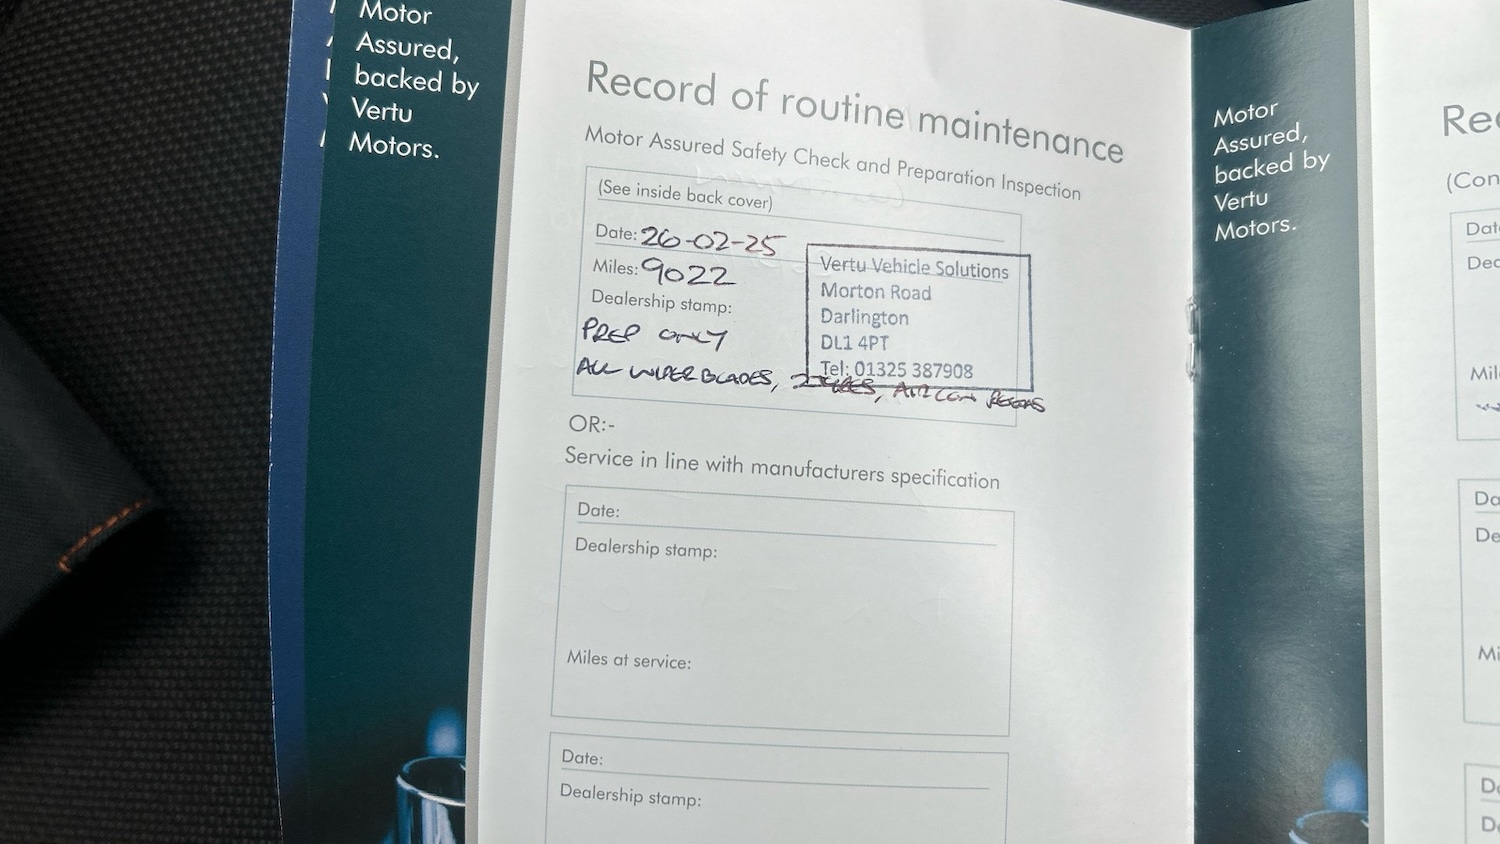 Motor
Assured,
backed by
Vertu
Motors.
Record of routine maintenance
Motor Assured Safety Check and Preparation Inspection
(See inside back cover)
Date: 26-02-25
Miles: 9022
Dealership stamp:
PREP ONLY
ALL WIPER BLADES, 2 TYRES, AIR CON REGAS
Vertu Vehicle Solutions
Morton Road
Darlington
DL1 4PT
Tel: 01325 387908
OR:-
Service in line with manufacturers specification
Date:
Dealership stamp:
Miles at service:
Date:
Dealership stamp:
Motor
Assured,
backed by
Vertu
Motors.
Rec
(Con
Dat
Dea
Mil
Da
De
Mi
D
D